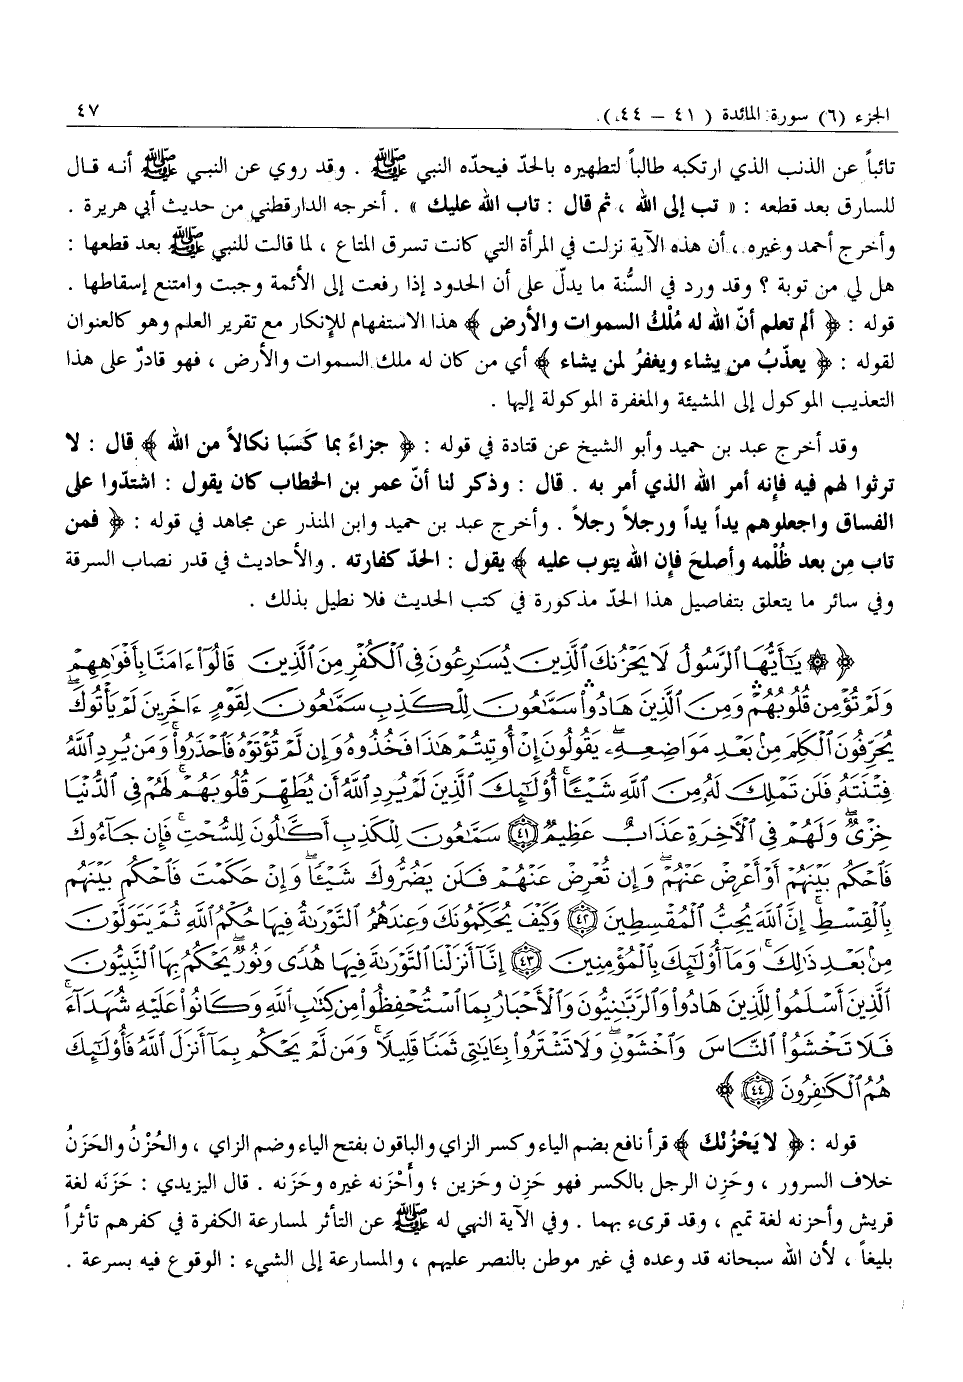 الجزء (٦) سورة: المائدة ( ٤١ – ٤٤ ). ٤٧
تائباً عن الذنب الذي ارتكبه طالباً لتطهيره بالحدّ فيحدّه النبي ﷺ . وقد روي عن النبي ﷺ أنه قال
للسارق بعد قطعه : « تب إلى الله ، ثم قال : تاب الله عليك » . أخرجه الدارقطني من حديث أبي هريرة .
وأخرج أحمد وغيره ، أن هذه الآية نزلت في المرأة التي كانت تسرق المتاع ، لما قالت للنبي ﷺ بعد قطعها :
هل لي من توبة ؟ وقد ورد في السُّنة ما يدلّ على أن الحدود إذا رفعت إلى الأئمة وجبت وامتنع إسقاطها .
قوله : ﴿ ألم تعلم أنّ الله له مُلْكُ السموات والأرض ﴾ هذا الاستفهام للإنكار مع تقرير العلم وهو كالعنوان
لقوله : ﴿ يعذّبُ من يشاء ويغفرُ لمن يشاء ﴾ أي من كان له ملك السموات والأرض ، فهو قادرٌ على هذا
التعذيب الموكول إلى المشيئة والمغفرة الموكولة إليها .
وقد أخرج عبد بن حميد وأبو الشيخ عن قتادة في قوله : ﴿ جزاءً بما كَسَبَا نكالاً من الله ﴾ قال : لا
ترثوا لهم فيه فإنه أمر الله الذي أمر به . قال : وذكر لنا أنّ عمر بن الخطاب كان يقول : اشتدّوا على
الفساق واجعلوهم يداً يداً ورجلاً رجلاً . وأخرج عبد بن حميد وابن المنذر عن مجاهد في قوله : ﴿ فمن
تاب مِن بعد ظُلْمه وأصلحَ فإن الله يتوب عليه ﴾ يقول : الحدّ كفارته . والأحاديث في قدر نصاب السرقة
وفي سائر ما يتعلق بتفاصيل هذا الحدّ مذكورة في كتب الحديث فلا نطيل بذلك .
﴿ ۞ يَٰٓأَيُّهَا ٱلرَّسُولُ لَا يَحْزُنكَ ٱلَّذِينَ يُسَٰرِعُونَ فِى ٱلْكُفْرِ مِنَ ٱلَّذِينَ قَالُوٓا۟ ءَامَنَّا بِأَفْوَٰهِهِمْ
وَلَمْ تُؤْمِن قُلُوبُهُمْ ۛ وَمِنَ ٱلَّذِينَ هَادُوا۟ ۛ سَمَّٰعُونَ لِلْكَذِبِ سَمَّٰعُونَ لِقَوْمٍ ءَاخَرِينَ لَمْ يَأْتُوكَ ۖ
يُحَرِّفُونَ ٱلْكَلِمَ مِنۢ بَعْدِ مَوَاضِعِهِۦ ۖ يَقُولُونَ إِنْ أُوتِيتُمْ هَٰذَا فَخُذُوهُ وَإِن لَّمْ تُؤْتَوْهُ فَٱحْذَرُوا۟ ۚ وَمَن يُرِدِ ٱللَّهُ
فِتْنَتَهُۥ فَلَن تَمْلِكَ لَهُۥ مِنَ ٱللَّهِ شَيْـًٔا ۚ أُو۟لَٰٓئِكَ ٱلَّذِينَ لَمْ يُرِدِ ٱللَّهُ أَن يُطَهِّرَ قُلُوبَهُمْ ۚ لَهُمْ فِى ٱلدُّنْيَا
خِزْىٌ ۖ وَلَهُمْ فِى ٱلْـَٔاخِرَةِ عَذَابٌ عَظِيمٌ ﴿٤١﴾ سَمَّٰعُونَ لِلْكَذِبِ أَكَّٰلُونَ لِلسُّحْتِ ۚ فَإِن جَآءُوكَ
فَٱحْكُم بَيْنَهُمْ أَوْ أَعْرِضْ عَنْهُمْ ۖ وَإِن تُعْرِضْ عَنْهُمْ فَلَن يَضُرُّوكَ شَيْـًٔا ۖ وَإِنْ حَكَمْتَ فَٱحْكُم بَيْنَهُم
بِٱلْقِسْطِ ۚ إِنَّ ٱللَّهَ يُحِبُّ ٱلْمُقْسِطِينَ ﴿٤٢﴾ وَكَيْفَ يُحَكِّمُونَكَ وَعِندَهُمُ ٱلتَّوْرَىٰةُ فِيهَا حُكْمُ ٱللَّهِ ثُمَّ يَتَوَلَّوْنَ
مِنۢ بَعْدِ ذَٰلِكَ ۚ وَمَآ أُو۟لَٰٓئِكَ بِٱلْمُؤْمِنِينَ ﴿٤٣﴾ إِنَّآ أَنزَلْنَا ٱلتَّوْرَىٰةَ فِيهَا هُدًى وَنُورٌ ۚ يَحْكُمُ بِهَا ٱلنَّبِيُّونَ
ٱلَّذِينَ أَسْلَمُوا۟ لِلَّذِينَ هَادُوا۟ وَٱلرَّبَّٰنِيُّونَ وَٱلْأَحْبَارُ بِمَا ٱسْتُحْفِظُوا۟ مِن كِتَٰبِ ٱللَّهِ وَكَانُوا۟ عَلَيْهِ شُهَدَآءَ ۚ
فَلَا تَخْشَوُا۟ ٱلنَّاسَ وَٱخْشَوْنِ وَلَا تَشْتَرُوا۟ بِـَٔايَٰتِى ثَمَنًا قَلِيلًا ۚ وَمَن لَّمْ يَحْكُم بِمَآ أَنزَلَ ٱللَّهُ فَأُو۟لَٰٓئِكَ
هُمُ ٱلْكَٰفِرُونَ ﴿٤٤﴾ ﴾
قوله : ﴿ لا يَحْزُنْكَ ﴾ قرأ نافع بضم الياء وكسر الزاي والباقون بفتح الياء وضم الزاي ، والحُزْنُ والحَزَنُ
خلاف السرور ، وحَزِن الرجل بالكسر فهو حَزِن وحَزين ؛ وأَحْزَنه غيره وحَزَنه . قال اليزيدي : حَزَنَه لغة
قريش وأحزنه لغة تميم ، وقد قرىء بهما . وفي الآية النهي له ﷺ عن التأثر لمسارعة الكفرة في كفرهم تأثراً
بليغاً ، لأن الله سبحانه قد وعده في غير موطن بالنصر عليهم ، والمسارعة إلى الشيء : الوقوع فيه بسرعة .